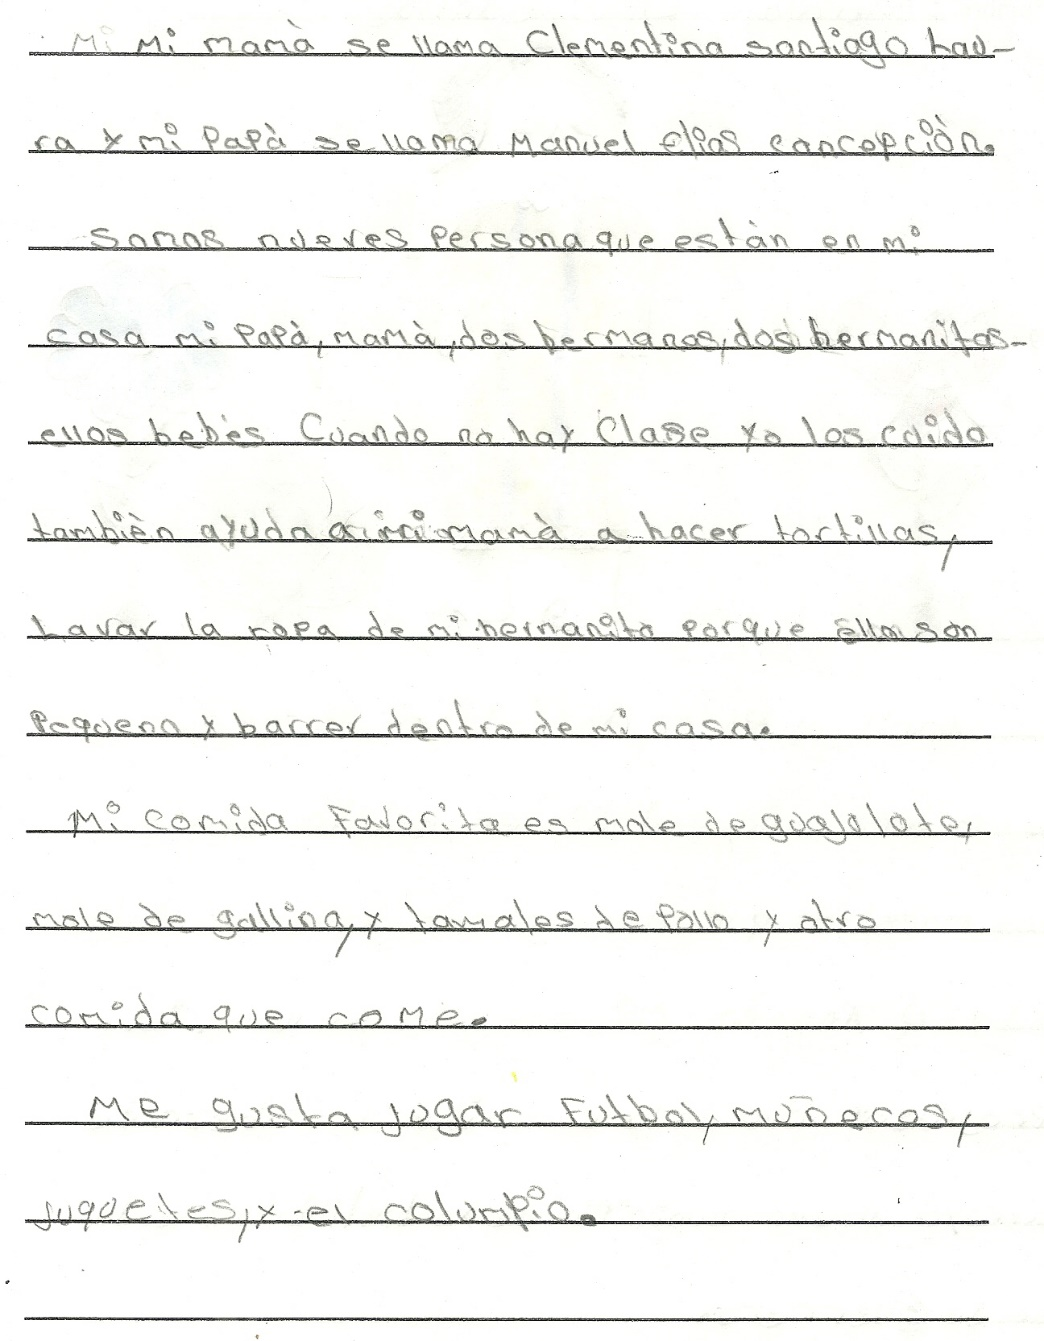 Mi Mi mamà se llama Clementina santiago Lau-
ra y mi Papà se llama Manuel Elias concepciòn.
Somos nueves Persona que estàn en mi
casa mi Papà, mamà, dos hermanos, dos hermanitos-
ellos bebès Cuando no hay Clase yo los cuido
tambièn ayuda a mi mamà a hacer tortillas,
Lavar la ropa de mi hernanito porque ello son
Pequeno y barrer dentro de mi casa.
Mi comida Favorita es mole de guajolote,
mole de gallina, y tamales de Pollo y otro
comida que come.
Me gusta jugar Futbol, muñecos,
juguetes, y el columpio.